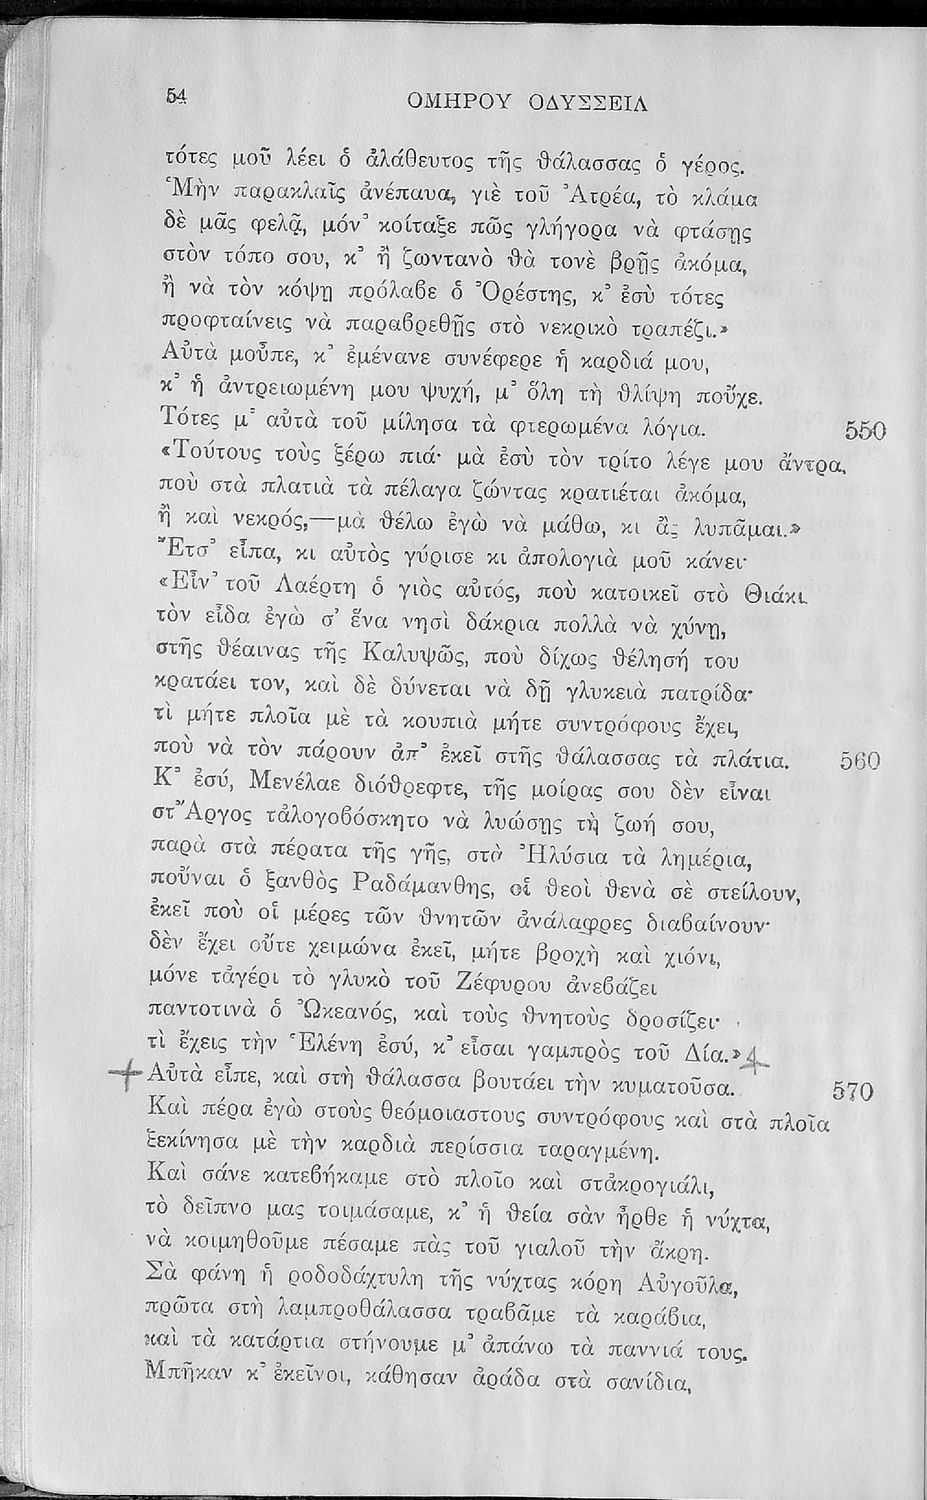 54 ΟΜΗΡΟΥ ΟΔΥΣΣΕΙΑ
τότες μοῦ λέει ὁ ἀλάθευτος τῆς θάλασσας ὁ γέρος.
‘Μὴν παρακλαῖς ἀνέπαυα, γιὲ τοῦ Ἀτρέα, τὸ κλάμα
δὲ μᾶς φελᾷ, μόν’ κοίταξε πῶς γλήγορα νὰ φτάσῃς
στὸν τόπο σου, κ’ ἢ ζωντανὸ θὰ τονὲ βρῇς ἀκόμα,
ἢ νὰ τὸν κόψῃ πρόλαβε ὁ Ὀρέστης, κ’ ἐσὺ τότες
προφταίνεις νὰ παραβρεθῇς στὸ νεκρικὸ τραπέζι.»
Αὐτὰ μοὖπε, κ’ ἐμένανε συνέφερε ἡ καρδιά μου,
κ’ ἡ ἀντρειωμένη μου ψυχή, μ’ ὅλη τὴ θλίψη ποὖχε.
Τότες μ’ αὐτὰ τοῦ μίλησα τὰ φτερωμένα λόγια. 550
«Τούτους τοὺς ξέρω πιά· μὰ ἐσὺ τὸν τρίτο λέγε μου ἄντρα,
ποὺ στὰ πλατιὰ τὰ πέλαγα ζώντας κρατιέται ἀκόμα,
ἢ καὶ νεκρός,—μὰ θέλω ἐγὼ νὰ μάθω, κι ἂς λυπᾶμαι.»
Ἔτσ’ εἶπα, κι αὐτὸς γύρισε κι ἀπολογιὰ μοῦ κάνει·
«Εἶν’ τοῦ Λαέρτη ὁ γιὸς αὐτός, ποὺ κατοικεῖ στὸ Θιάκι.
τὸν εἶδα ἐγὼ σ’ ἕνα νησὶ δάκρια πολλὰ νὰ χύνῃ,
στῆς θέαινας τῆς Καλυψῶς, ποὺ δίχως θέλησή του
κρατάει τον, καὶ δὲ δύνεται νὰ δῇ γλυκειὰ πατρίδα·
τὶ μήτε πλοῖα μὲ τὰ κουπιὰ μήτε συντρόφους ἔχει,
ποὺ νὰ τὸν πάρουν ἀπ’ ἐκεῖ στῆς θάλασσας τὰ πλάτια. 560
Κ’ ἐσύ, Μενέλαε διόθρεφτε, τῆς μοίρας σου δὲν εἶναι
στ’ Ἄργος τἀλογοβόσκητο νὰ λυώσῃς τὴ ζωή σου,
παρὰ στὰ πέρατα τῆς γῆς, στὰ Ἠλύσια τὰ λημέρια,
ποὖναι ὁ ξανθὸς Ραδάμανθης, οἱ θεοὶ θενὰ σὲ στείλουν,
ἐκεῖ ποὺ οἱ μέρες τῶν θνητῶν ἀνάλαφρες διαβαίνουν·
δὲν ἔχει οὔτε χειμώνα ἐκεῖ, μήτε βροχὴ καὶ χιόνι,
μόνε τἀγέρι τὸ γλυκὸ τοῦ Ζέφυρου ἀνεβάζει
παντοτινὰ ὁ Ὠκεανός, καὶ τοὺς θνητοὺς δροσίζει·
τὶ ἔχεις τὴν Ἑλένη ἐσύ, κ’ εἶσαι γαμπρὸς τοῦ Δία.»
Αὐτὰ εἶπε, καὶ στὴ θάλασσα βουτάει τὴν κυματοῦσα. 570
Καὶ πέρα ἐγὼ στοὺς θεόμοιαστους συντρόφους καὶ στὰ πλοῖα
ξεκίνησα μὲ τὴν καρδιὰ περίσσια ταραγμένη.
Καὶ σάνε κατεβήκαμε στὸ πλοῖο καὶ στἀκρογιάλι,
τὸ δεῖπνο μας τοιμάσαμε, κ’ ἡ θεία σὰν ἦρθε ἡ νύχτα,
νὰ κοιμηθοῦμε πέσαμε πὰς τοῦ γιαλοῦ τὴν ἄκρη.
Σὰ φάνη ἡ ροδοδάχτυλη τῆς νύχτας κόρη Αὐγοῦλα,
πρῶτα στὴ λαμπροθάλασσα τραβᾶμε τὰ καράβια,
καὶ τὰ κατάρτια στήνουμε μ’ ἀπάνω τὰ παννιά τους.
Μπῆκαν κ’ ἐκεῖνοι, κάθησαν ἀράδα στὰ σανίδια,